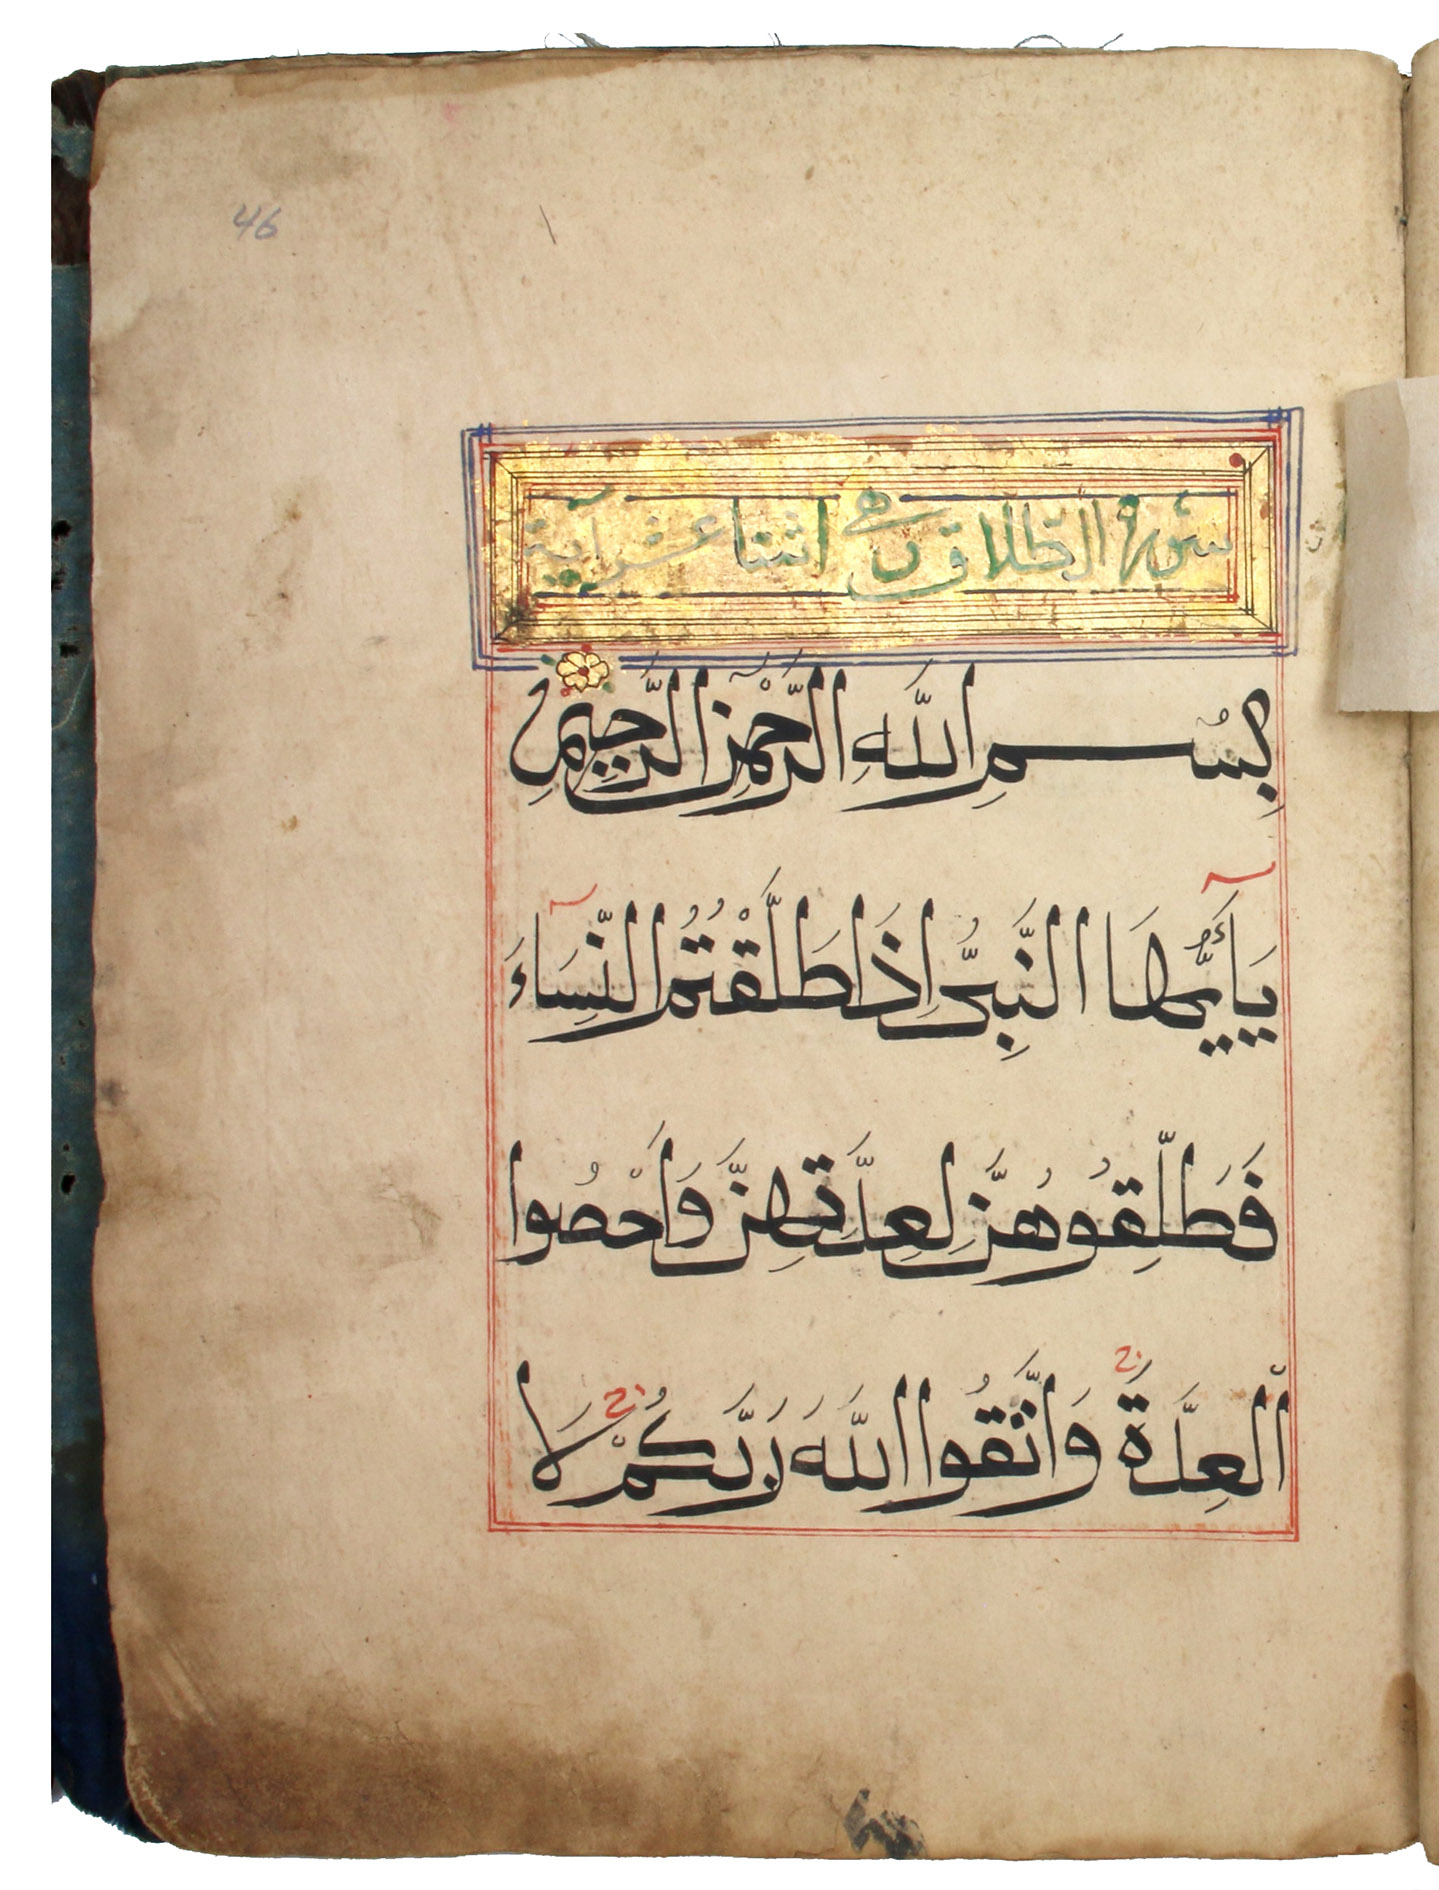 46
سورة الطلاق وهي اثنتا عشر آية
بِسْمِ اللَّهِ الرَّحْمٰنِ الرَّحِيمِ
يَآأَيُّهَا النَّبِيُّ إِذَا طَلَّقْتُمُ النِّسَآءَ
فَطَلِّقُوهُنَّ لِعِدَّتِهِنَّ وَأَحْصُوا
الْعِدَّةَ ج وَاتَّقُوا اللَّهَ رَبَّكُمْ ج لَا